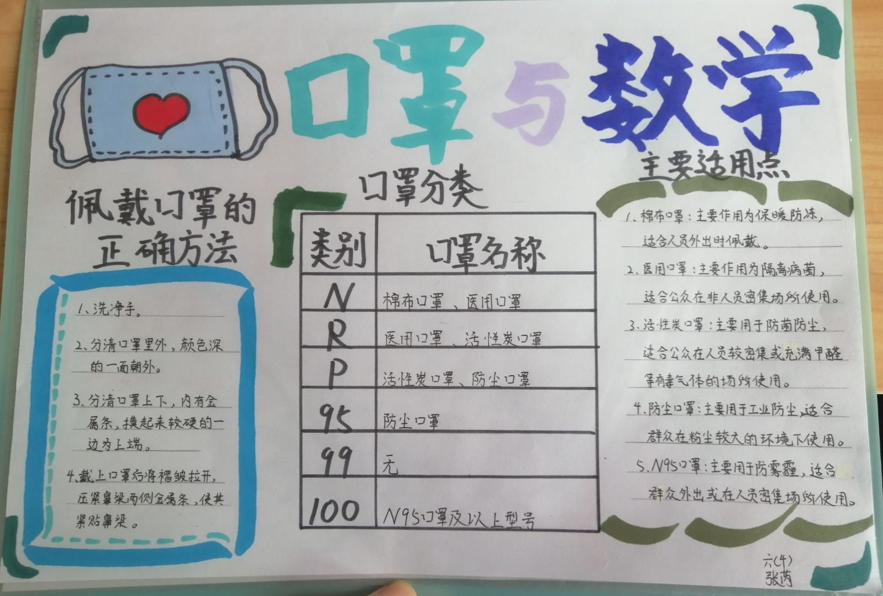 口罩与数学
佩戴口罩的
正确方法
1、洗净手。
2、分清口罩里外，颜色深
的一面朝外。
3、分清口罩上下，内有金
属条，摸起来较硬的一
边为上端。
4、戴上口罩后将褶皱拉开，
压紧鼻梁两侧金属条，使其
紧贴鼻梁。
口罩分类
类别 口罩名称
N 棉布口罩、医用口罩
R 医用口罩、活性炭口罩
P 活性炭口罩、防尘口罩
95 防尘口罩
99 无
100 N95口罩及以上型号
主要适用点
1、棉布口罩：主要作用为保暖防冻，
适合人员外出时佩戴。
2、医用口罩：主要作用为隔离病菌，
适合公众在非人员密集场所使用。
3、活性炭口罩：主要用于防菌防尘，
适合公众在人员较密集或充满甲醛
等有毒气体的场所使用。
4、防尘口罩：主要用于工业防尘，适合
群众在粉尘较大的环境下使用。
5、N95口罩：主要用于防雾霾，适合
群众外出或在人员密集场所使用。
六(4)
张芮